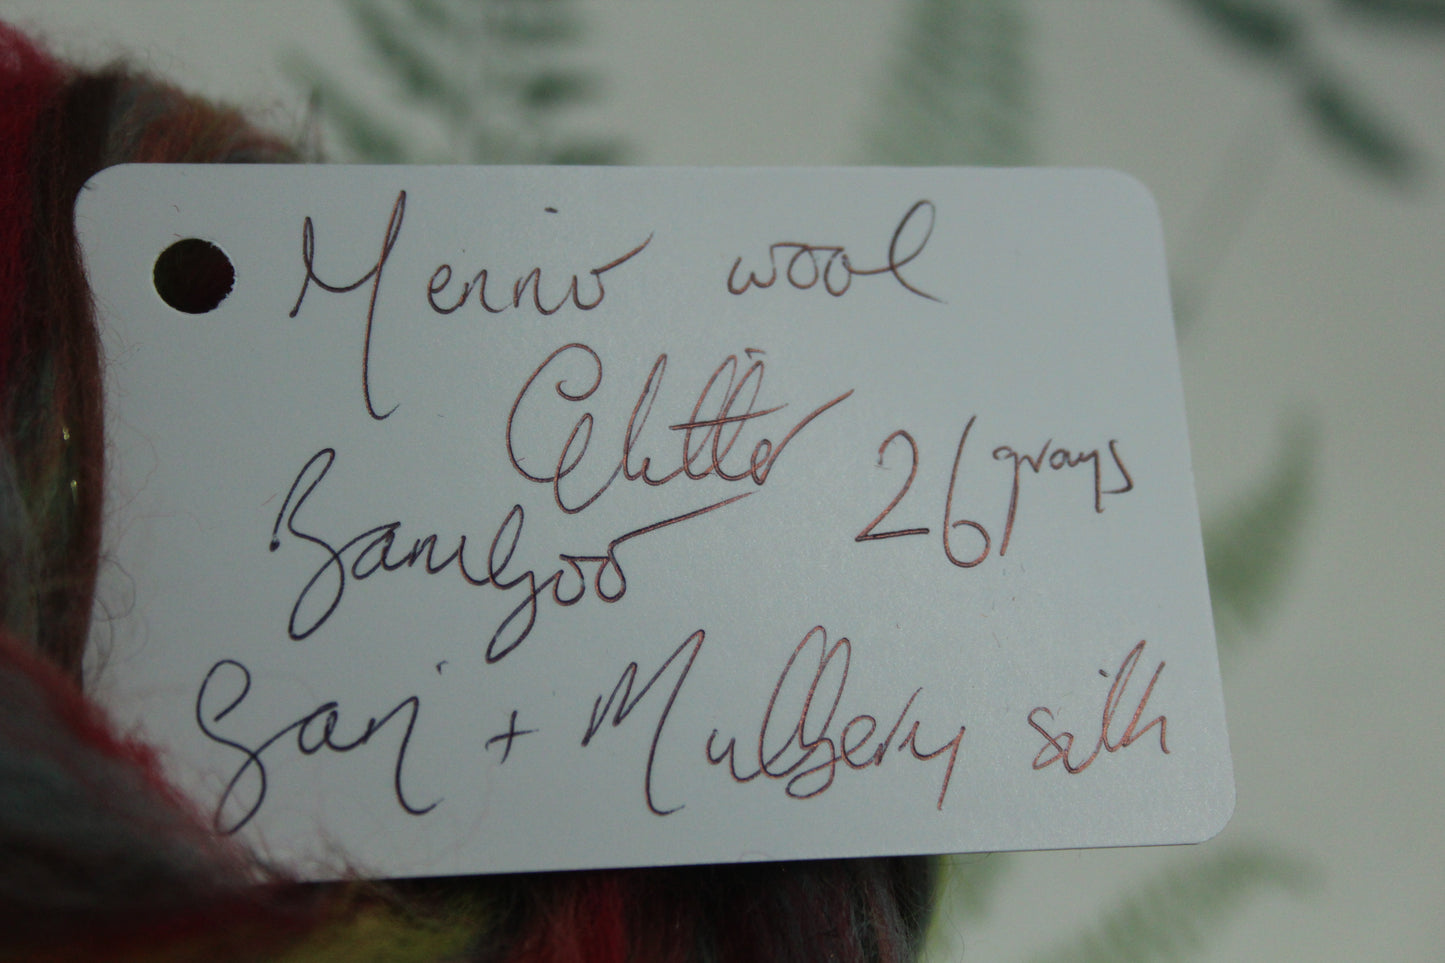 Merino wool
Glitter
Bamboo 26 grays
Sari + Mulberry silk